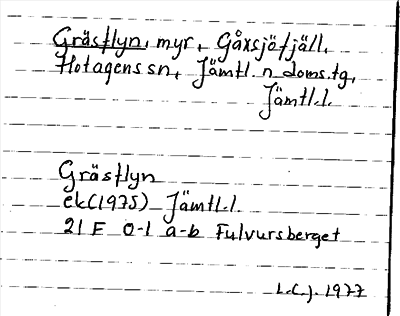 Gräsflyn, myr, Gåxsjöfjäll,
Hotagens sn, Jämtl. n. doms.tg,
Jämtl.l.
Gräsflyn
ek(1975) Jämtl.l.
21 F 0-1 a-b Fulvursberget
L.C.J. 1977